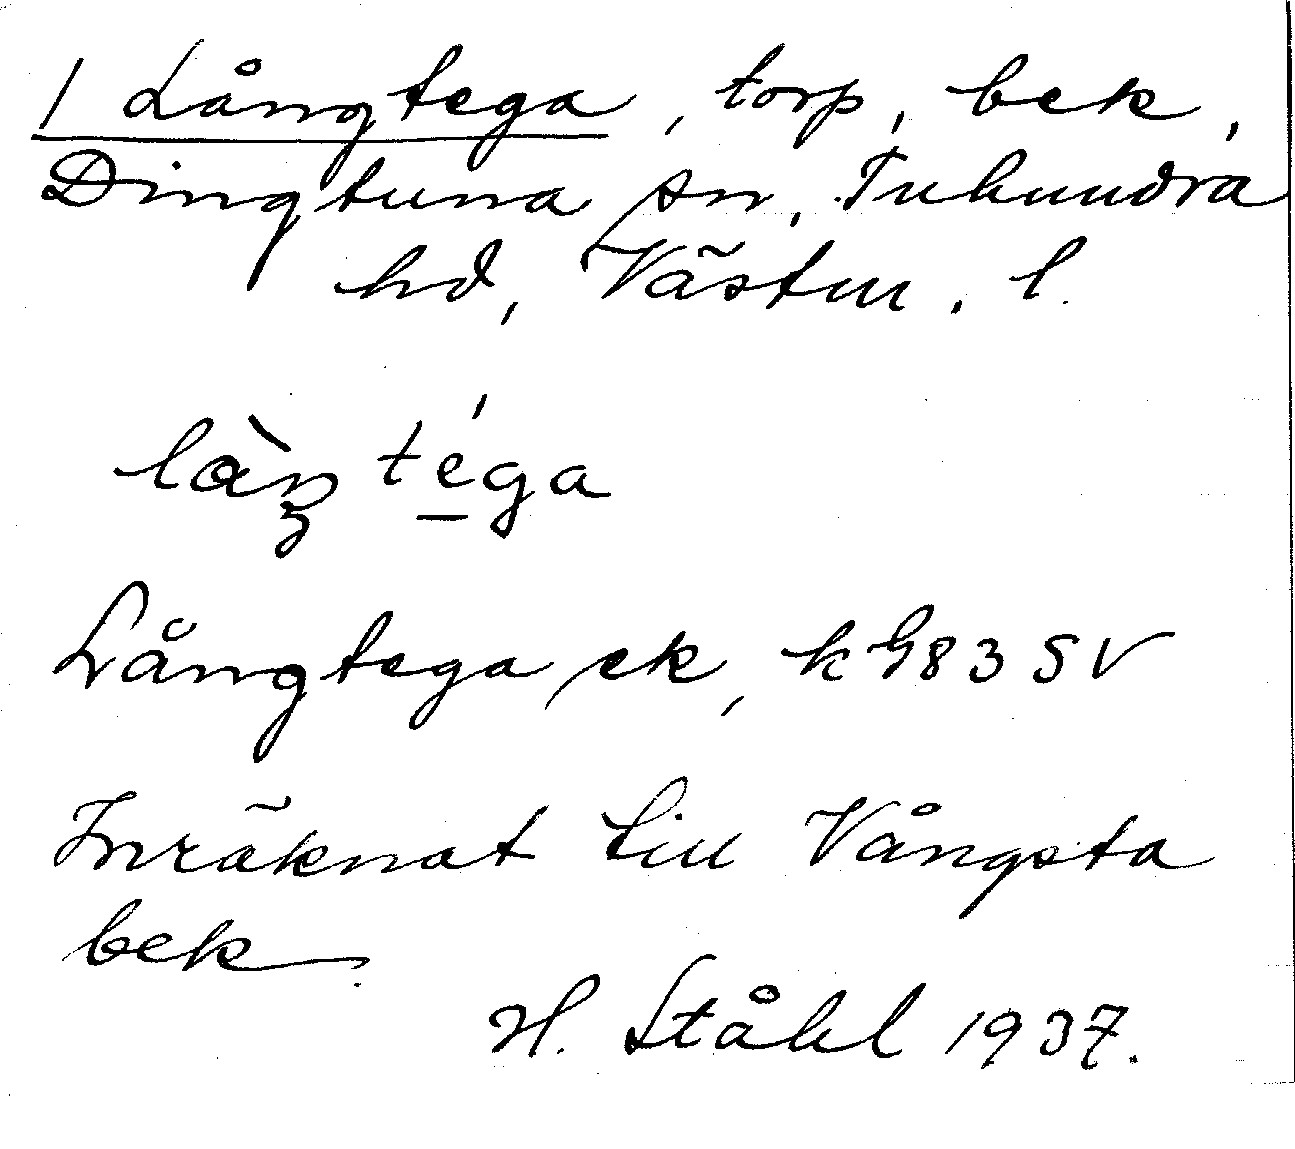 1 Långtega, torp, bek,
Dingtuna sn, Tuhundra
hd, Västm. l.
làŋtéga
Långtega ek, k G83 SV
Inräknat till Vångsta
bek.
H. Ståhl 1937.